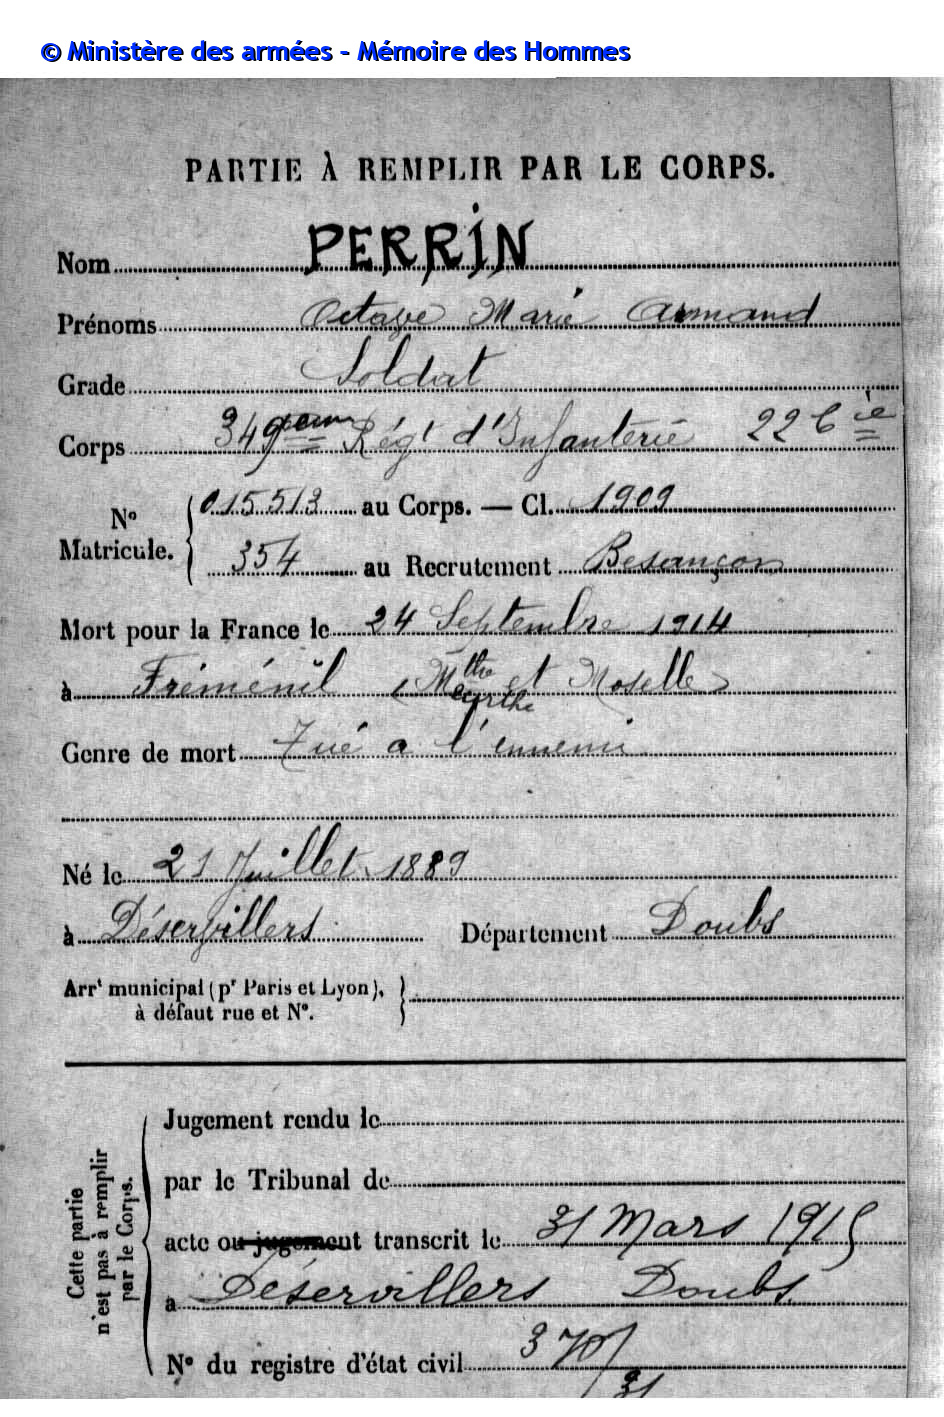 © Ministère des armées - Mémoire des Hommes
PARTIE À REMPLIR PAR LE CORPS.
Nom PERRIN
Prénoms Octave Marie Armand
Grade Soldat
Corps 349ème Régt d'Infanterie 22 Cie
No Matricule. 015513 au Corps. — Cl. 1909
354 au Recrutement Besançon
Mort pour la France le 24 Septembre 1914
à Fréménil (Mthe et Moselle)
Meurthe
Genre de mort Tué a l'ennemi
Né le 21 Juillet 1889
à Déservillers Département Doubs
Arrt municipal (pr Paris et Lyon),
à défaut rue et No.
Cette partie
n'est pas à remplir
par le Corps.
Jugement rendu le
par le Tribunal de
acte ou jugement transcrit le 31 Mars 1915
à Déservillers Doubs
No du registre d'état civil 370/
31